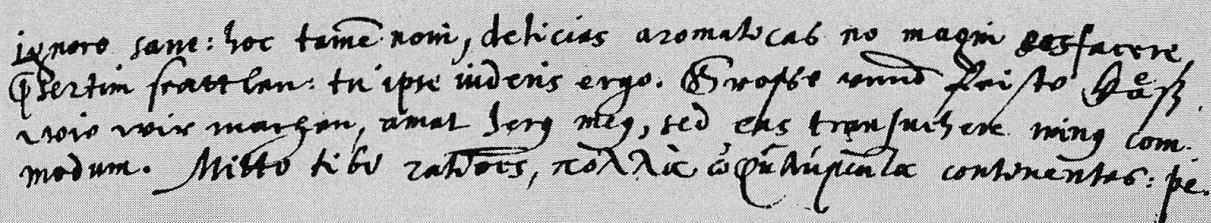 ignoro sane: hoc tamē noui, delicias aromaticas no magni eas facere,
p̄sertim scattlen: tu ipse uideris ergo. Grosse unnd feiste Kaͤß
wie wir machen, amat herꝰ meꝰ, sed eas transuehere minꝰ com.
modum. Mitto tibi ratiōes, πολλὰ continentes: pe.